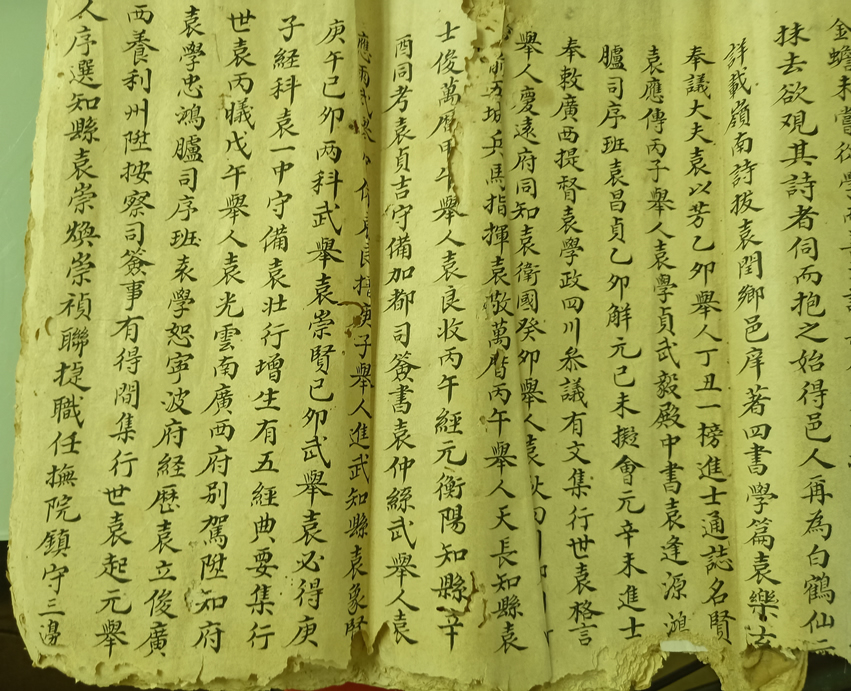 金蟾未嘗從學
抹去欲观其詩者伺而抱之始得邑人再為白鶴仙
詳載嶺南詩拔袁閏鄉邑庠著四書學篇袁樂
奉議大夫袁以芳乙卯舉人丁丑一榜進士通誌名賢
袁應傳丙子舉人袁學貞武毅殿中書袁逢源鴻
臚司序班袁昌貞乙卯解元己未擬會元辛未進士
奉敕廣西提督袁學政四川叅議有文集行世袁格言
舉人慶遠府同知袁衛國癸卯舉人袁
兵馬指揮袁敬萬曆丙午舉人天長知縣袁
士俊萬曆甲午舉人袁良收丙午經元衡陽知縣辛
酉同考袁貞吉守備加都司簽書袁仲絲武舉人袁
子舉人進武知縣袁象賢
庚午己卯兩科武舉袁崇賢己卯武舉袁必得庚
子経科袁一中守備袁壯行增生有五經典要集行
世袁丙曦戊午舉人袁光雲南廣西府別駕陞知府
袁學忠鴻臚司序班袁學恕寜波府経歷袁立俊廣
西養利州陞按察司簽事有得閒集行世袁起元舉
人序選知縣袁崇煥崇禎聯捷職任撫院鎮守三邊